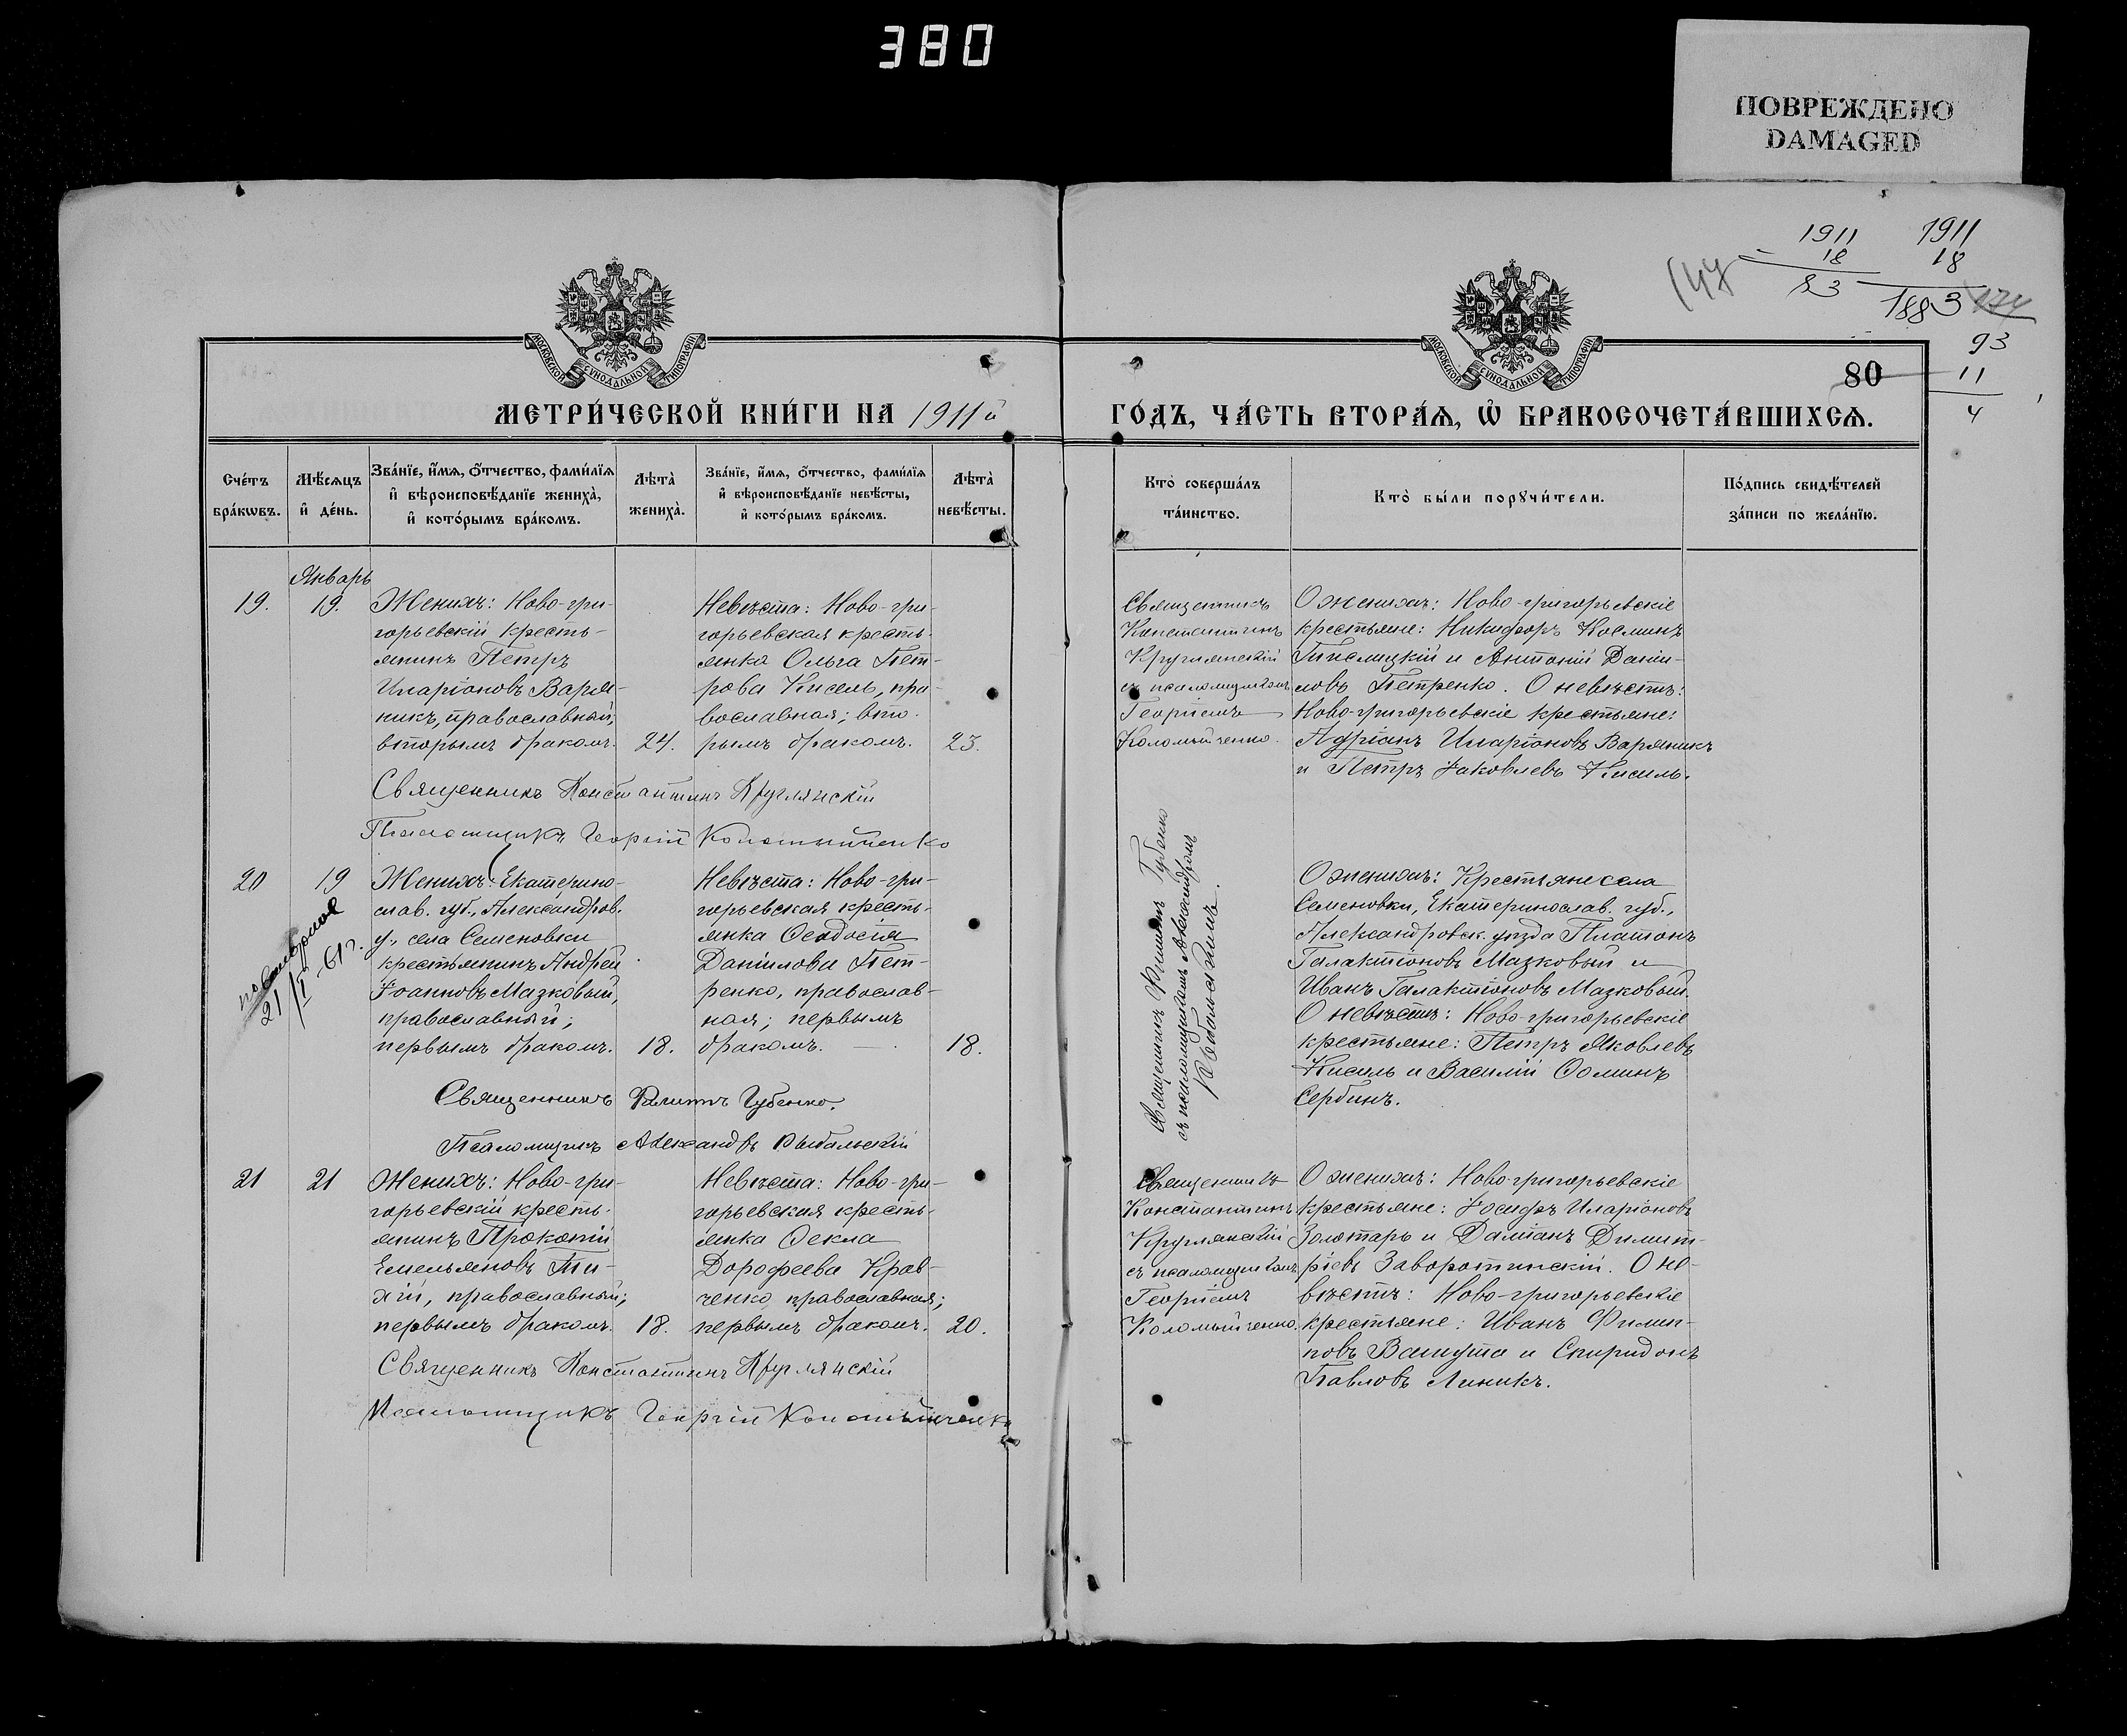 380
ПОВРЕЖДЕНО
DAMAGED
1911
18
83
1911
18
1883
93
11
4
80
МОСКОВСКОЙ СУНОДАЛЬНОЙ ТИПОГРАФІИ
МОСКОВСКОЙ СУНОДАЛЬНОЙ ТИПОГРАФІИ
МЕТРИ́ЧЕСКОЙ КНИ́ГИ НА 1911й
ГО́ДЪ, ЧА́СТЬ ВТОРА́Ѧ, Ѡ҆ БРАКОСОЧЕТА́ВШИХСѦ.
Сче́тъ
бра́кѡвъ.
Мѣ́сѧцъ
и҆ де́нь.
Зва́нїе, и҆́мѧ, ѻ҆́тчество, фами́лїѧ
и҆ вѣроисповѣ́данїе жениха̀,
и҆ кото́рымъ бра́комъ.
Лѣта̀
жениха̀.
Зва́нїе, и҆́мѧ, ѻ҆́тчество, фами́лїѧ
и҆ вѣроисповѣ́данїе невѣ́сты,
и҆ кото́рымъ бра́комъ.
Лѣта̀
невѣ́сты.
Кто̀ соверша́лъ
та́инство.
Кто̀ бы́ли порꙋчи́тели.
По́дпись свидѣ́телей
за́писи по жела́нїю.
Январь
19.
19.
Женихъ: Ново-гри-
горьевскій кресть-
янинъ Петръ
Иларіоновъ Варя-
никъ, православный;
вторымъ бракомъ.
24.
Невѣста: Ново-гри-
горьевская кресть-
янка Ольга Пет-
рова Кисель, пра-
вославная; вто-
рымъ бракомъ.
23.
Священникъ
Константинъ
Круглянскій
съ псаломщикомъ
Георгіемъ
Коломыйченко.
О женихѣ: Ново-григорьевскіе
крестьяне: Никифоръ Косминъ
Тислицкій и Антоній Даніи-
ловъ Петренко. О невѣстѣ:
Ново-григорьевскіе крестьяне:
Адріанъ Иларіоновъ Варяникъ
и Петръ Іаковлевъ Кисиль.
Священникъ Константинъ Круглянскій
Псаломщикъ Георгій Коломыйченко
20
19
повторное
21/I-61г.
Женихъ: Екатерино-
слав. губ., Александров.
у., села Семеновки
крестьянинъ Андрей
Іоанновъ Мазковый,
православный;
первымъ бракомъ.
18.
Невѣста: Ново-гри-
горьевская кресть-
янка Ѳеодосія
Даніилова Пет-
ренко, православ-
ная; первымъ
бракомъ.
18.
Священникъ Филиппъ Губенко
съ псаломщикомъ Александромъ
Рыбальскимъ.
О женихѣ: Крестьяне села
Семеновки, Екатеринослав. губ.,
Александровск. уѣзда Платонъ
Галактіоновъ Мазковый и
Иванъ Галактіоновъ Мазковый.
О невѣстѣ: Ново-григорьевскіе
крестьяне: Петръ Яковлевъ
Кисиль и Василій Ѳоминъ
Сербинъ.
Священникъ Филиппъ Губенко.
Псаломщикъ Александръ Рыбальскій
21
21
Женихъ: Ново-гри-
горьевскій кресть-
янинъ Прокопій
Емельяновъ Ти-
хій, православный;
первымъ бракомъ.
18.
Невѣста: Ново-гри-
горьевская кресть-
янка Ѳекла
Дорофеева Крав-
ченко православная;
первымъ бракомъ.
20.
Священникъ
Константинъ
Круглянскій
съ псаломщикомъ
Георгіемъ
Коломыйченко.
О женихѣ: Ново-григорьевскіе
крестьяне: Іосифъ Иларіоновъ
Золотарь и Даміанъ Димит-
ріевъ Заворотинскій. О не-
вѣстѣ: Ново-григорьевскіе
крестьяне: Иванъ Филип-
повъ Вакута и Спиридонъ
Павловъ Линикъ.
Священникъ Константинъ Круглянскій
Псаломщикъ Георгій Коломыйченко